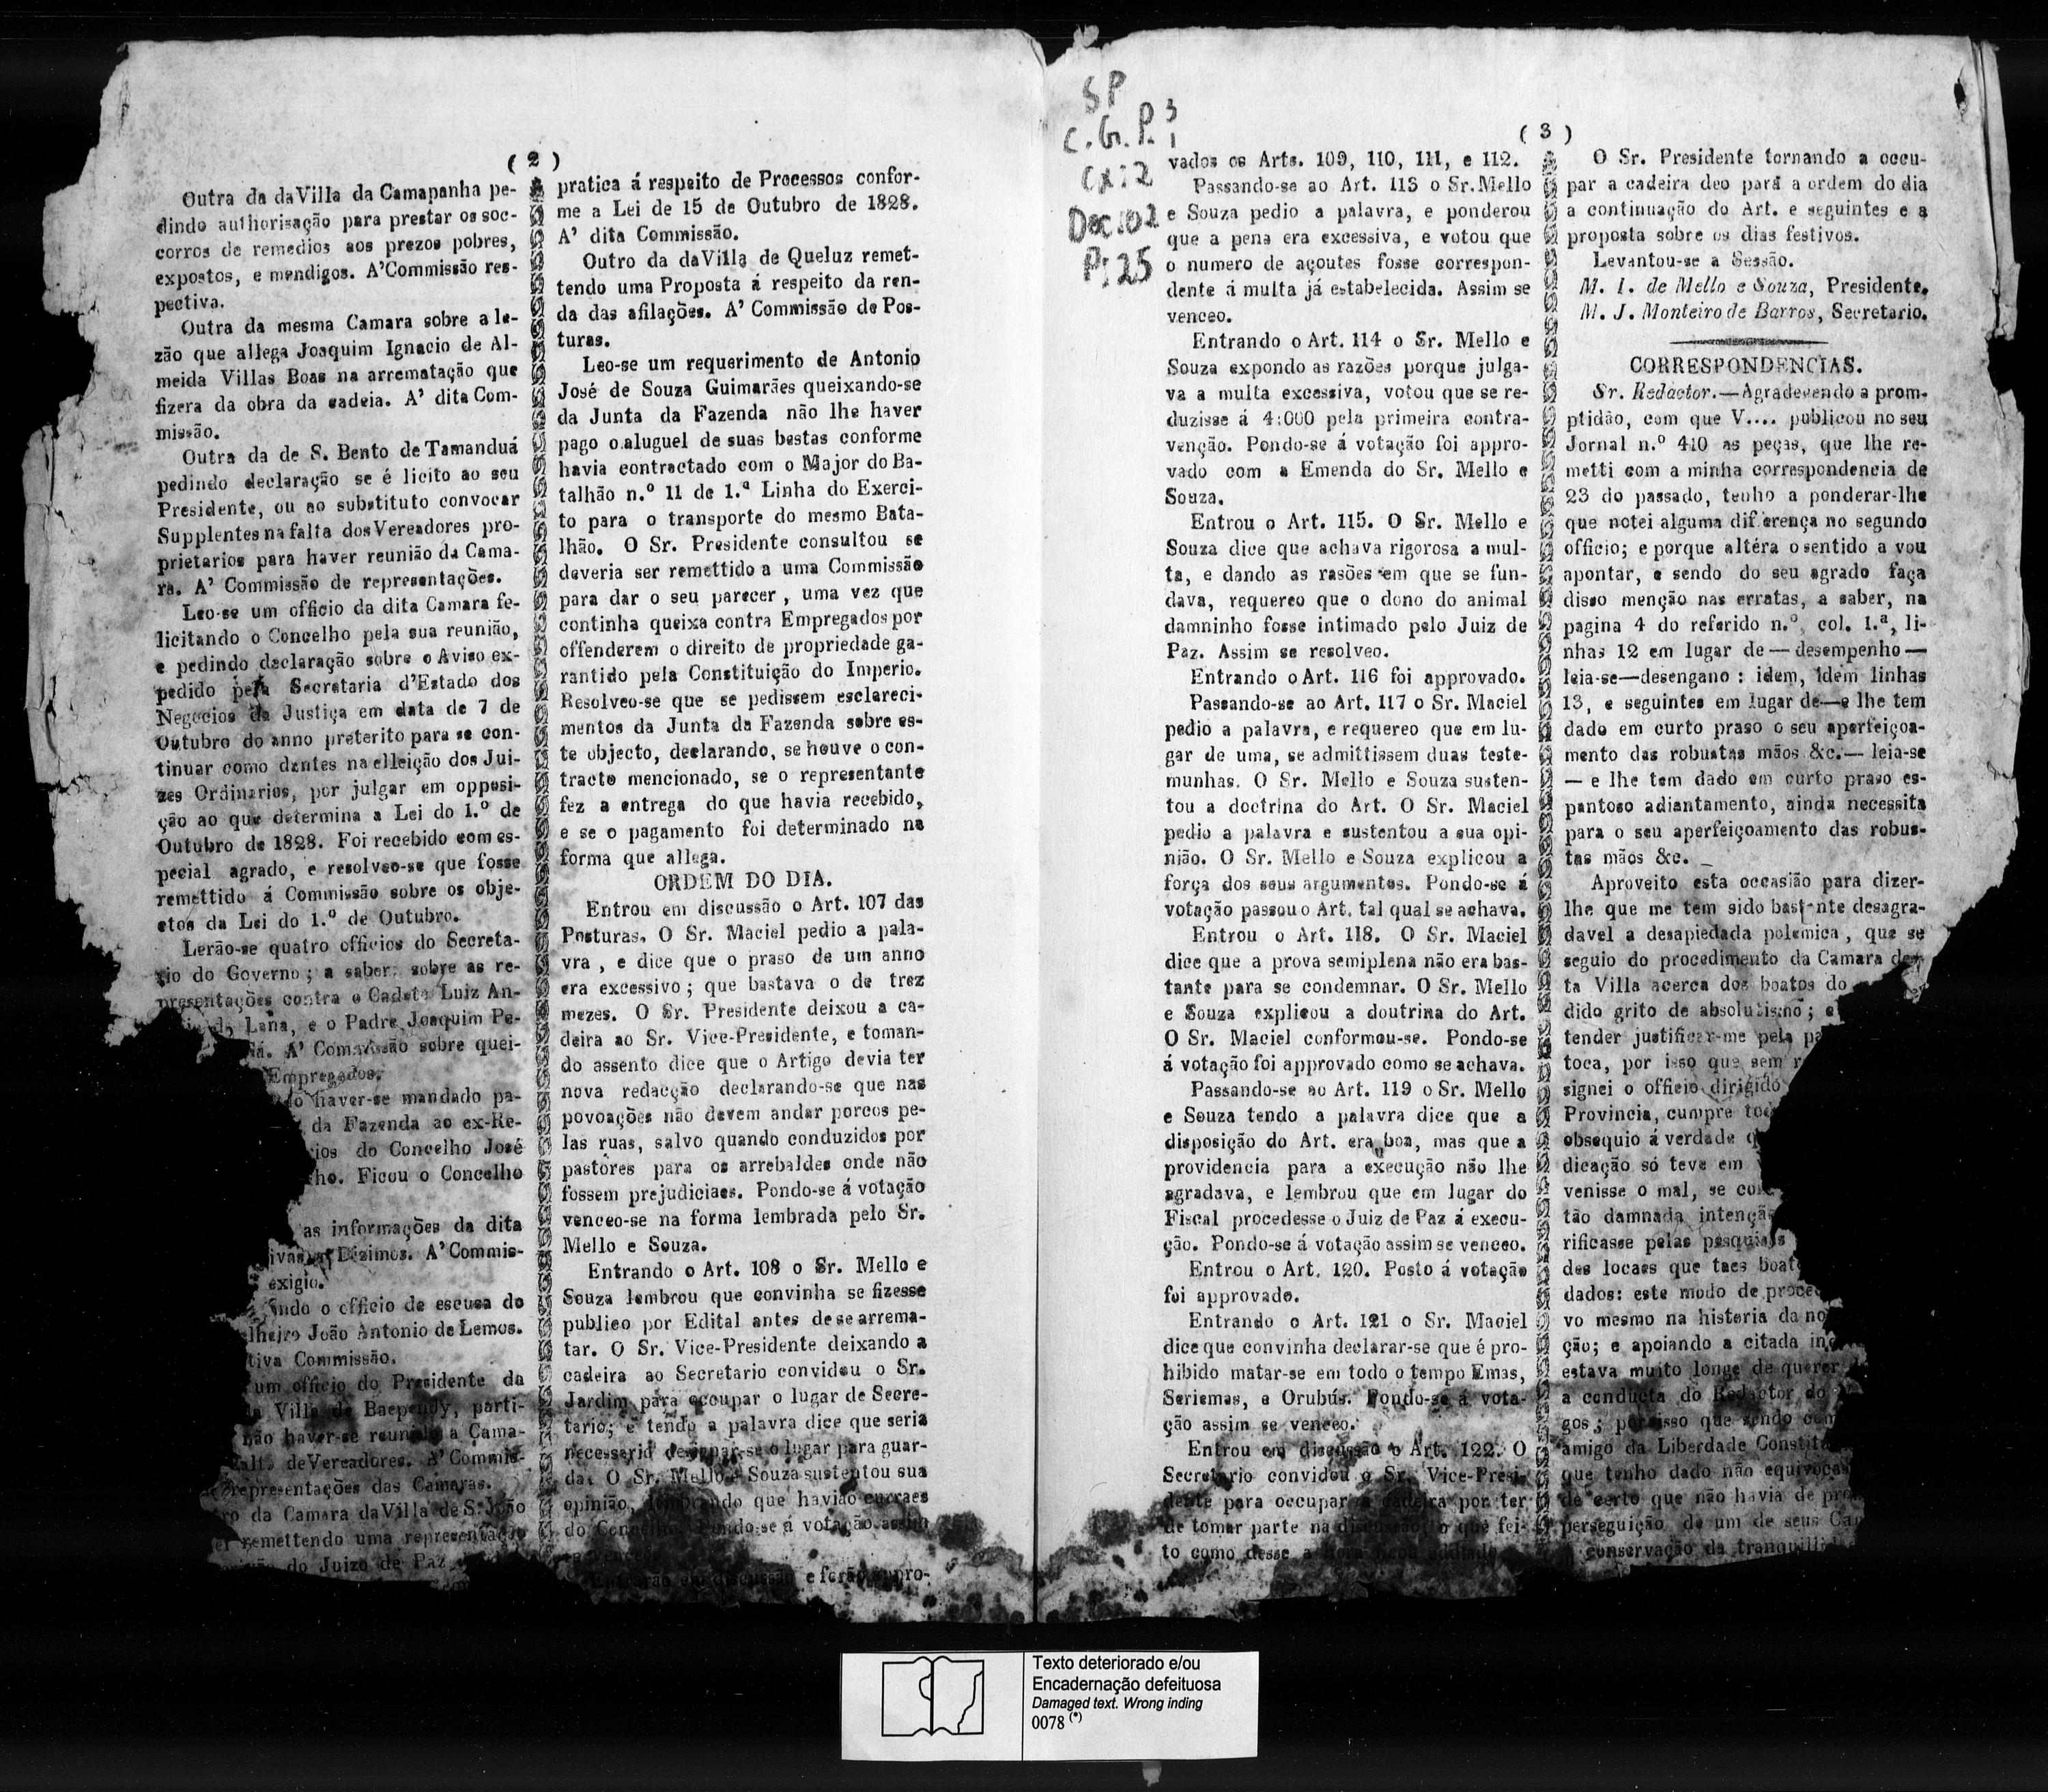 ( 2 )
Outra da da Villa da Camapanha pe-
dindo authorisação para prestar os soc-
corros de remedios aos prezos pobres,
expostos, e mendigos. A' Commissão res-
pectiva.
Outra da mesma Camara sobre a le-
zão que allega Joaquim Ignacio de Al-
meida Villas Boas na arrematação que
fizera da obra da cadeia. A' dita Com-
missão.
Outra da de S. Bento de Tamanduá
pedindo declaração se é licito ao seu
Presidente, ou ao substituto convocar
Supplentes na falta dos Vereadores pro-
prietarios para haver reunião da Cama-
ra. A' Commissão de representações.
Leo-se um officio da dita Camara fe-
licitando o Concelho pela sua reunião,
e pedindo declaração sobre o Aviso ex-
pedido pela Secretaria d'Estado dos
Negocios da Justiça em data de 7 de
Outubro do anno preterito para se con-
tinuar como dantes na elleição dos Jui-
zes Ordinarios, por julgar em opposi-
ção ao que determina a Lei do 1.º de
Outubro de 1828. Foi recebido com es-
pecial agrado, e resolveo-se que fosse
remettido á Commissão sobre os obje-
ctos da Lei do 1.º de Outubro.
Lerão-se quatro officios do Secreta-
rio do Governo; a saber: sobre as re-
presentações contra o Cadete Luiz An-
Lana, e o Padre Joaquim Pe-
A' Commissão sobre quei-
Empregados.
haver-se mandado pa-
da Fazenda ao ex-Re-
do Concelho José
Ficou o Concelho
as informações da dita
Dizimos. A' Commis-
exigio.
o officio de escusa do
João Antonio de Lemos.
Commissão.
um officio do Presidente da
Villa de Baependy, parti-
não haver-se reunido a Cama-
de Vereadores. A' Commis-
representações das Camaras.
da Camara da Villa de S. João
remettendo uma representação
do Juizo de Paz
pratica á respeito de Processos confor-
me a Lei de 15 de Outubro de 1828.
A' dita Commissão.
Outro da da Villa de Queluz remet-
tendo uma Proposta á respeito da ren-
da das afilações. A' Commissão de Pos-
turas.
Leo-se um requerimento de Antonio
José de Souza Guimarães queixando-se
da Junta da Fazenda não lhe haver
pago o aluguel de suas bestas conforme
havia contractado com o Major do Ba-
talhão n.º 11 de 1.ª Linha do Exerci-
to para o transporte do mesmo Bata-
lhão. O Sr. Presidente consultou se
deveria ser remettido a uma Commissão
para dar o seu parecer, uma vez que
continha queixa contra Empregados por
offenderem o direito de propriedade ga-
rantido pela Constituição do Imperio.
Resolveo-se que se pedissem esclareci-
mentos da Junta da Fazenda sobre es-
te objecto, declarando, se houve o con-
tracto mencionado, se o representante
fez a entrega do que havia recebido,
e se o pagamento foi determinado na
forma que allega.
ORDEM DO DIA.
Entrou em discussão o Art. 107 das
Posturas. O Sr. Maciel pedio a pala-
vra, e dice que o praso de um anno
era excessivo; que bastava o de trez
mezes. O Sr. Presidente deixou a ca-
deira ao Sr. Vice-Presidente, e toman-
do assento dice que o Artigo devia ter
nova redacção declarando-se que nas
povoações não devem andar porcos pe-
las ruas, salvo quando conduzidos por
pastores para os arrebaldes onde não
fossem prejudiciaes. Pondo-se á votação
venceo-se na forma lembrada pelo Sr.
Mello e Souza.
Entrando o Art. 108 o Sr. Mello e
Souza lembrou que convinha se fizesse
publico por Edital antes de se arrema-
tar. O Sr. Vice-Presidente deixando a
cadeira ao Secretario convidou o Sr.
Jardim para occupar o lugar de Secre-
tario; e tendo a palavra dice que seria
necesserio designar-se o lugar para guar-
da. O Sr. Mello e Souza sustentou sua
opinião, lembrando que havião curraes
do Concelho. Pondo-se á votação assim
venceo.
Entrarão em discussão e forão appro-
SP
C. Gr. P. 3
1
Cx: 2
Doc: 102
P: 25
( 3 )
vados os Arts. 109, 110, 111, e 112.
Passando-se ao Art. 113 o Sr. Mello
e Souza pedio a palavra, e ponderou
que a pena era excessiva, e votou que
o numero de açoutes fosse correspon-
dente á multa já estabelecida. Assim se
venceo.
Entrando o Art. 114 o Sr. Mello e
Souza expondo as razões porque julga-
va a multa excessiva, votou que se re-
duzisse á 4:000 pela primeira contra-
venção. Pondo-se á votação foi appro-
vado com a Emenda do Sr. Mello e
Souza.
Entrou o Art. 115. O Sr. Mello e
Souza dice que achava rigorosa a mul-
ta, e dando as rasões em que se fun-
dava, requereo que o dono do animal
damninho fosse intimado pelo Juiz de
Paz. Assim se resolveo.
Entrando o Art. 116 foi approvado.
Passando-se ao Art. 117 o Sr. Maciel
pedio a palavra, e requereo que em lu-
gar de uma, se admittissem duas teste-
munhas. O Sr. Mello e Souza susten-
tou a doctrina do Art. O Sr. Maciel
pedio a palavra e sustentou a sua opi-
nião. O Sr. Mello e Souza explicou a
força dos seus argumentos. Pondo-se á
votação passou o Art. tal qual se achava.
Entrou o Art. 118. O Sr. Maciel
dice que a prova semiplena não era bas-
tante para se condemnar. O Sr. Mello
e Souza explicou a doutrina do Art.
O Sr. Maciel conformou-se. Pondo-se
á votação foi approvado como se achava.
Passando-se ao Art. 119 o Sr. Mello
e Souza tendo a palavra dice que a
disposição do Art. era boa, mas que a
providencia para a execução não lhe
agradava, e lembrou que em lugar do
Fiscal procedesse o Juiz de Paz á execu-
ção. Pondo-se á votação assim se venceo.
Entrou o Art. 120. Posto á votação
foi approvado.
Entrando o Art. 121 o Sr. Maciel
dice que convinha declarar-se que é pro-
hibido matar-se em todo o tempo Emas,
Seriemas, e Orubús. Pondo-se á vota-
ção assim se venceo.
Entrou em discussão o Art. 122. O
Secretario convidou o Sr. Vice-Presi-
dente para occupar a cadeira por ter
de tomar parte na discussão, o que fei-
to como desse a hora ficou addiado.
O Sr. Presidente tornando a occu-
par a cadeira deo para a ordem do dia
a continuação do Art. e seguintes e a
proposta sobre os dias festivos.
Levantou-se a Sessão.
M. I. de Mello e Souza, Presidente.
M. J. Monteiro de Barros, Secretario.
CORRESPONDENCIAS.
Sr. Redactor.—Agradecendo a prom-
ptidão, com que V.... publicou no seu
Jornal n.º 410 as peças, que lhe re-
metti com a minha correspondencia de
23 do passado, tenho a ponderar-lhe
que notei alguma differença no segundo
officio; e porque altéra o sentido a vou
apontar, e sendo do seu agrado faça
disso menção nas erratas, a saber, na
pagina 4 do referido n.º, col. 1.ª, li-
nhas 12 em lugar de — desempenho —
leia-se—desengano: idem, idem linhas
13, e seguintes em lugar de—e lhe tem
dado em curto praso o seu aperfeiçoa-
mento das robustas mãos &c.— leia-se
— e lhe tem dado em curto praso es-
pantoso adiantamento, ainda necessita
para o seu aperfeiçoamento das robus-
tas mãos &c. _
Aproveito esta occasião para dizer-
lhe que me tem sido bastante desagra-
davel a desapiedada polemica, que se
seguio do procedimento da Camara des-
ta Villa acerca dos boatos do
dido grito de absolutismo; e
tender justificar-me pela
toca, por isso que sem
signei o officio dirigido
Provincia, cumpre
obsequio á verdade
dicação só teve em
venisse o mal, se
tão damnada intenção
rificasse pelas pesquisas
des locaes que taes
dados: este modo de
vo mesmo na historia da
ção; e apoiando a citada
estava muito longe de querer
a conducta do Redactor do
gos; por isso que sendo
amigo da Liberdade
que tenho dado não equivocas
de certo que não havia de
perseguição de um de seus
conservação da
Texto deteriorado e/ou
Encadernação defeituosa
Damaged text. Wrong inding
0078 (*)